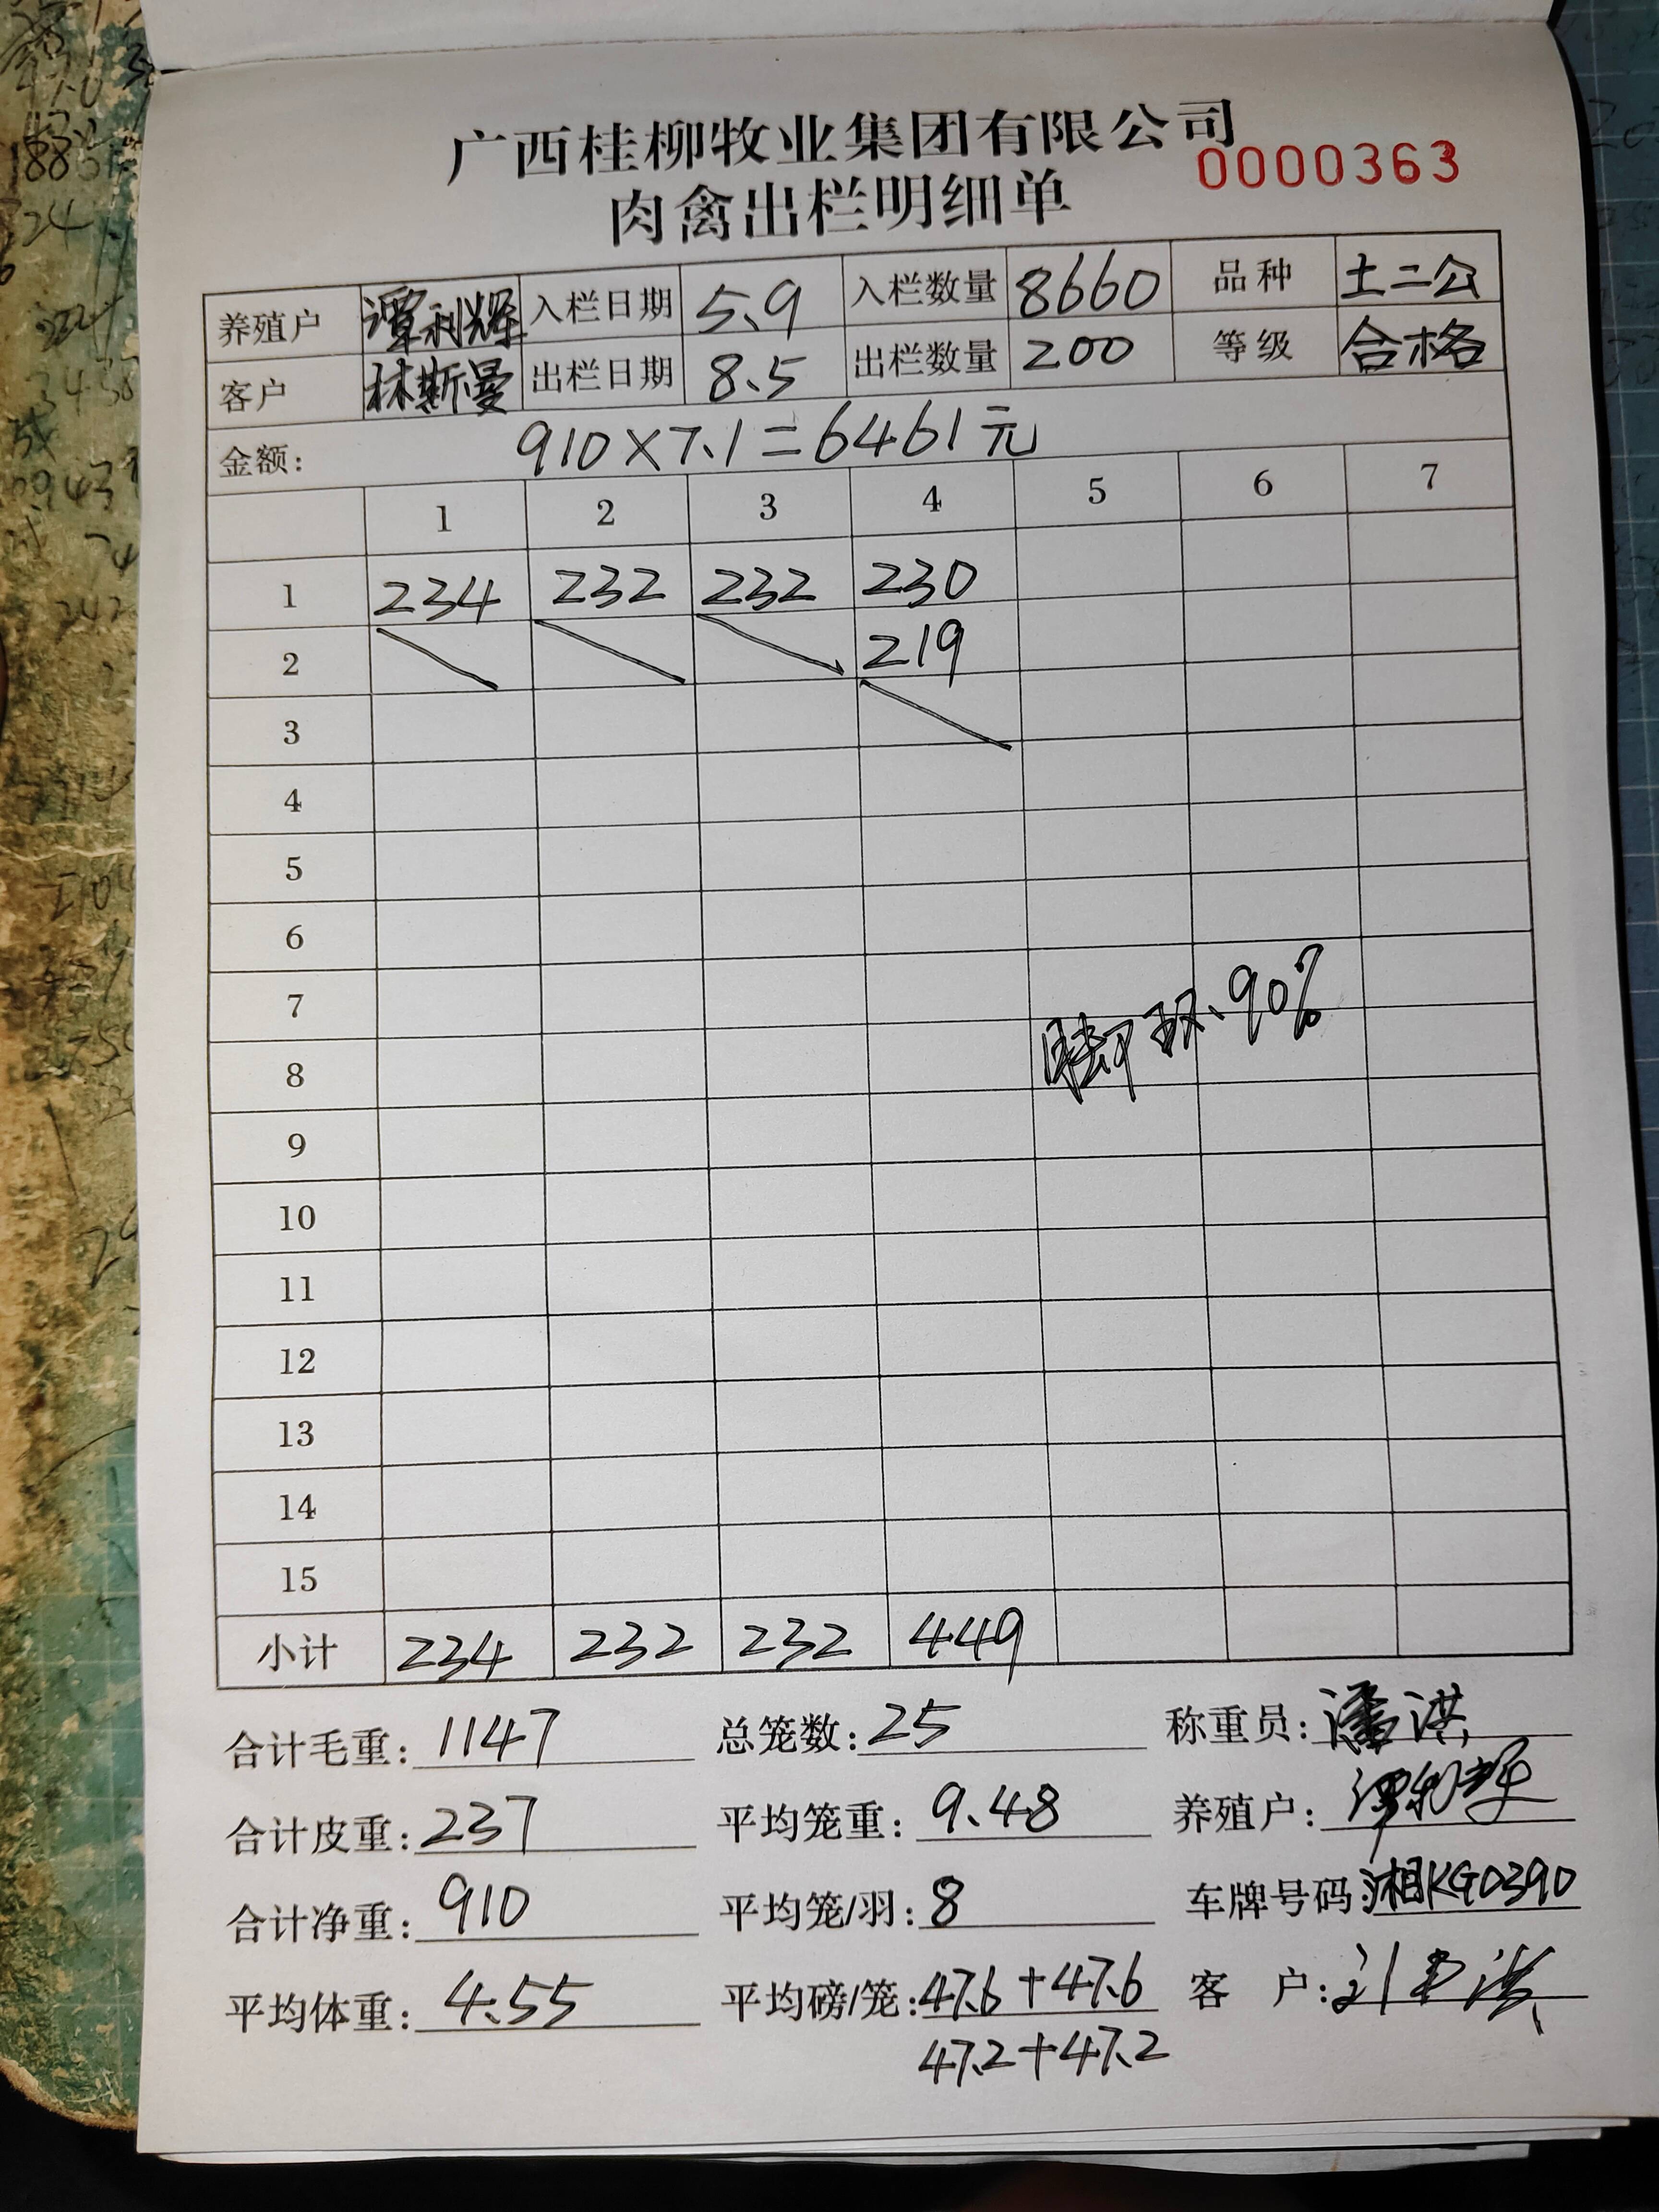 广西桂柳牧业集团有限公司
0000363
肉禽出栏明细单
养殖户 谭利辉 入栏日期 5.9 入栏数量 8660 品种 土二公
客户 林斯曼 出栏日期 8.5 出栏数量 200 等级 合格
金额: 910×7.1=6461元
1 2 3 4 5 6 7
1 234 232 232 230
2 219
3
4
5
6
7
脚环、90%
8
9
10
11
12
13
14
15
小计 234 232 232 449
合计毛重: 1147 总笼数: 25 称重员: 潘洪
合计皮重: 237 平均笼重: 9.48 养殖户: 谭利辉
合计净重: 910 平均笼/羽: 8 车牌号码: 湘KG0390
平均体重: 4.55 平均磅/笼: 47.6+47.6 客户:
47.2+47.2